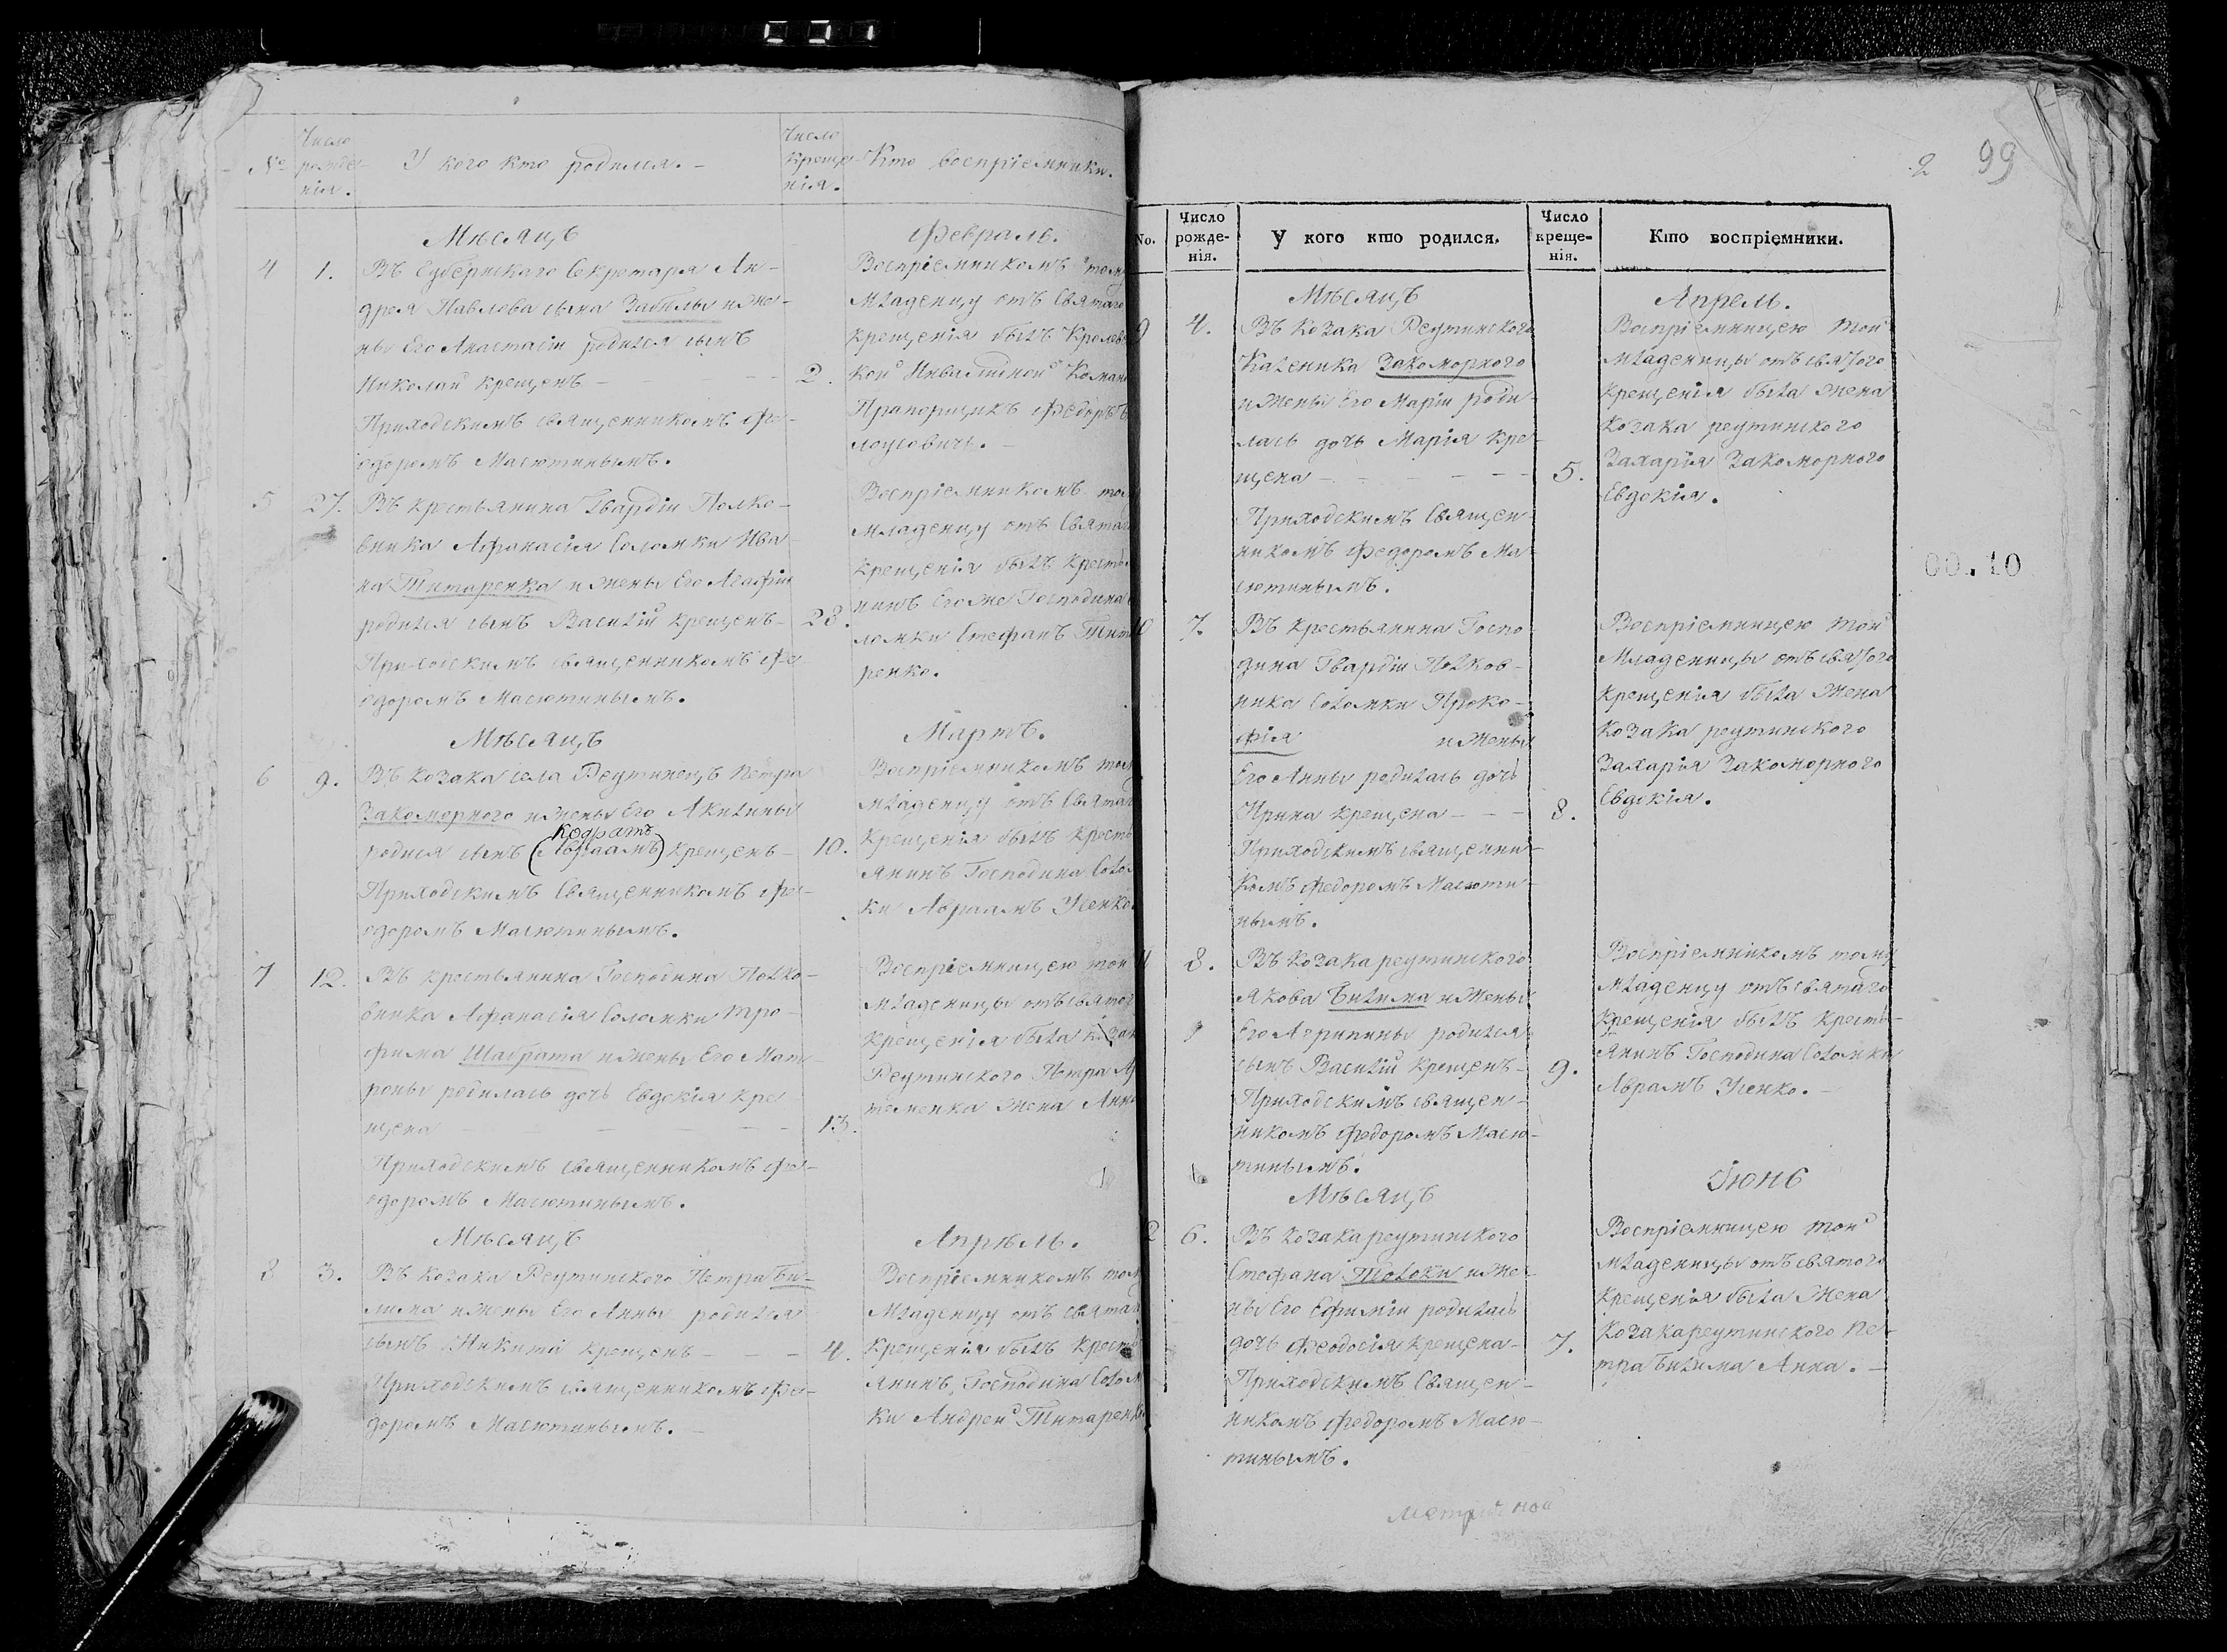 №
Число рожде-
нія.
У кого кто родился. -
Число
Креще-
нія.
Кто воспріемники.
Мѣсяцъ
Февраль.
4 1. Въ Губернскаго Секретаря Ан-
дрея Павлова сына Забѣлы и же-
ны Его Анастасіи родился сынъ
Николай крещенъ - 2.
Приходскимъ священникомъ Фе-
одоромъ Масютинымъ.
Воспріемникомъ
младенцу отъ Святаго
крещенія былъ
кой Инвалидной
Прапорщикъ Федоръ
лоусовичь. -
5 27. Въ крестьянина Гвардіи Полко-
вника Афанасія Соломки Ива-
на Титаренка и жены Его Агафіи
родился сынъ Василій крещенъ - 28.
Приходскимъ священникомъ Фе-
одоромъ Масютинымъ.
Воспріемникомъ
младенцу отъ
крещенія былъ
нинъ Его же Господина
ломки Стефанъ
ренко.
Мѣсяцъ
Мартъ.
6 9. Въ козака села Реутинецъ Петра
Закоморного и жены Его Акилины
Кодратъ
родися сынъ (Авраамъ) крещенъ - 10.
Приходскимъ Священникомъ Фе-
одоромъ Масютинымъ.
Воспріемникомъ
младенцу отъ
Крещенія былъ
янинъ Господина
ки Авраамъ Усенко
7 12. Въ крестьянина Господина Полко-
вника Афанасія Соломки Тро-
фима Шабрата и жены Его Мат-
роны родилась дочь Евдокія кре-
щена - 13.
Приходскимъ священникомъ Фе-
одоромъ Масютинымъ.
Воспріемницею той
младеницы отъ
крещенія была
Реутинского Петра
теменка жена Анна
Мѣсяцъ
Апрѣль.
8 3. Въ козака Реутинского Петра Би-
лима и жены Его Анны родился
сынъ Никита крещенъ - - - 4.
Приходскимъ священникомъ Фе-
доромъ Масютинымъ. -
Воспріемникомъ
младенцу отъ
Крещенія былъ
янинъ, Господина
ки Андрей Титаренко
2 99
No.
Число
рожде-
нія.
У кого кто родился.
Число
креще-
нія.
Кто воспріемники.
Мѣсяцъ
Апрель.
9 4. Въ козака Реутинского
Каленика Закоморного
и жены Его Маріи роди-
лась дочь Марія кре-
щена - - - - - 5.
Приходскимъ Священ-
никомъ Федоромъ Ма-
сютинымъ.
Воспріемницею той
младеницы отъ святого
крещенія была жена
козака реутинского
Захарія Закоморного
Евдокія.
00.10
10 7. Въ крестьянина Госпо-
дина Гвардіи Полков-
ника Соломки Проко-
фія и жены
Его Анны родилась дочь
Ирина крещена - - - 8.
Приходскимъ священни-
комъ Федоромъ Масюти-
нымъ.
Воспріемницею той
Младеницы отъ святого
крещенія была жена
козака реутинского
Захарія Закоморного
Евдокія.
11 8. Въ козака реутинского
Якова Билима и жены
Его Агрипины родился
сынъ Василій крещенъ - 9.
Приходскимъ священ-
никомъ Федоромъ Масю-
тинымъ.
Воспріемникомъ тому
младенцу отъ святаго
крещенія былъ кресть-
янинъ Господина Соломки
Аврамъ Усенко. -
Мѣсяцъ
Іюнь
12 6. Въ козака реутинского
Стефана Толоки и же-
ны Его Ефиміи родилась
дочь Феодосія крещена - 7.
Приходскимъ Священ-
никомъ Федоромъ Масю-
тинымъ.
Воспріемницею той
младеницы отъ святого
крещенія была жена
козака реутинского Пе-
тра Билима Анна. -